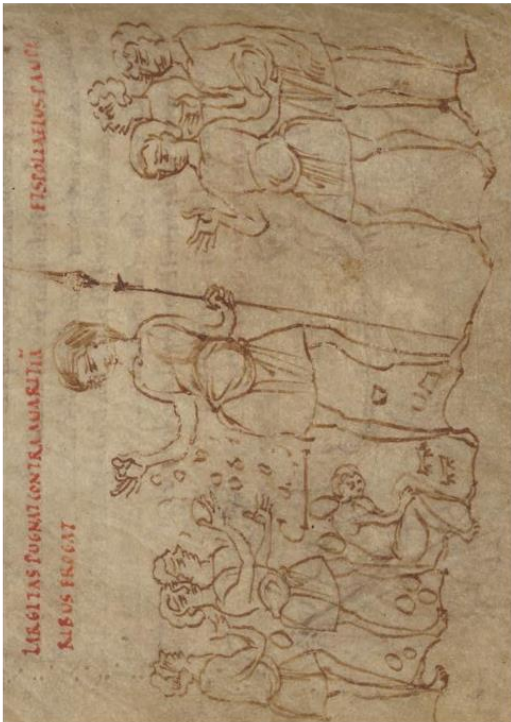 LARGITAS PUGNAT CONTRA AUARITIĀ ET SPOLIA EIUS PAUPE
RIBUS EROGAT